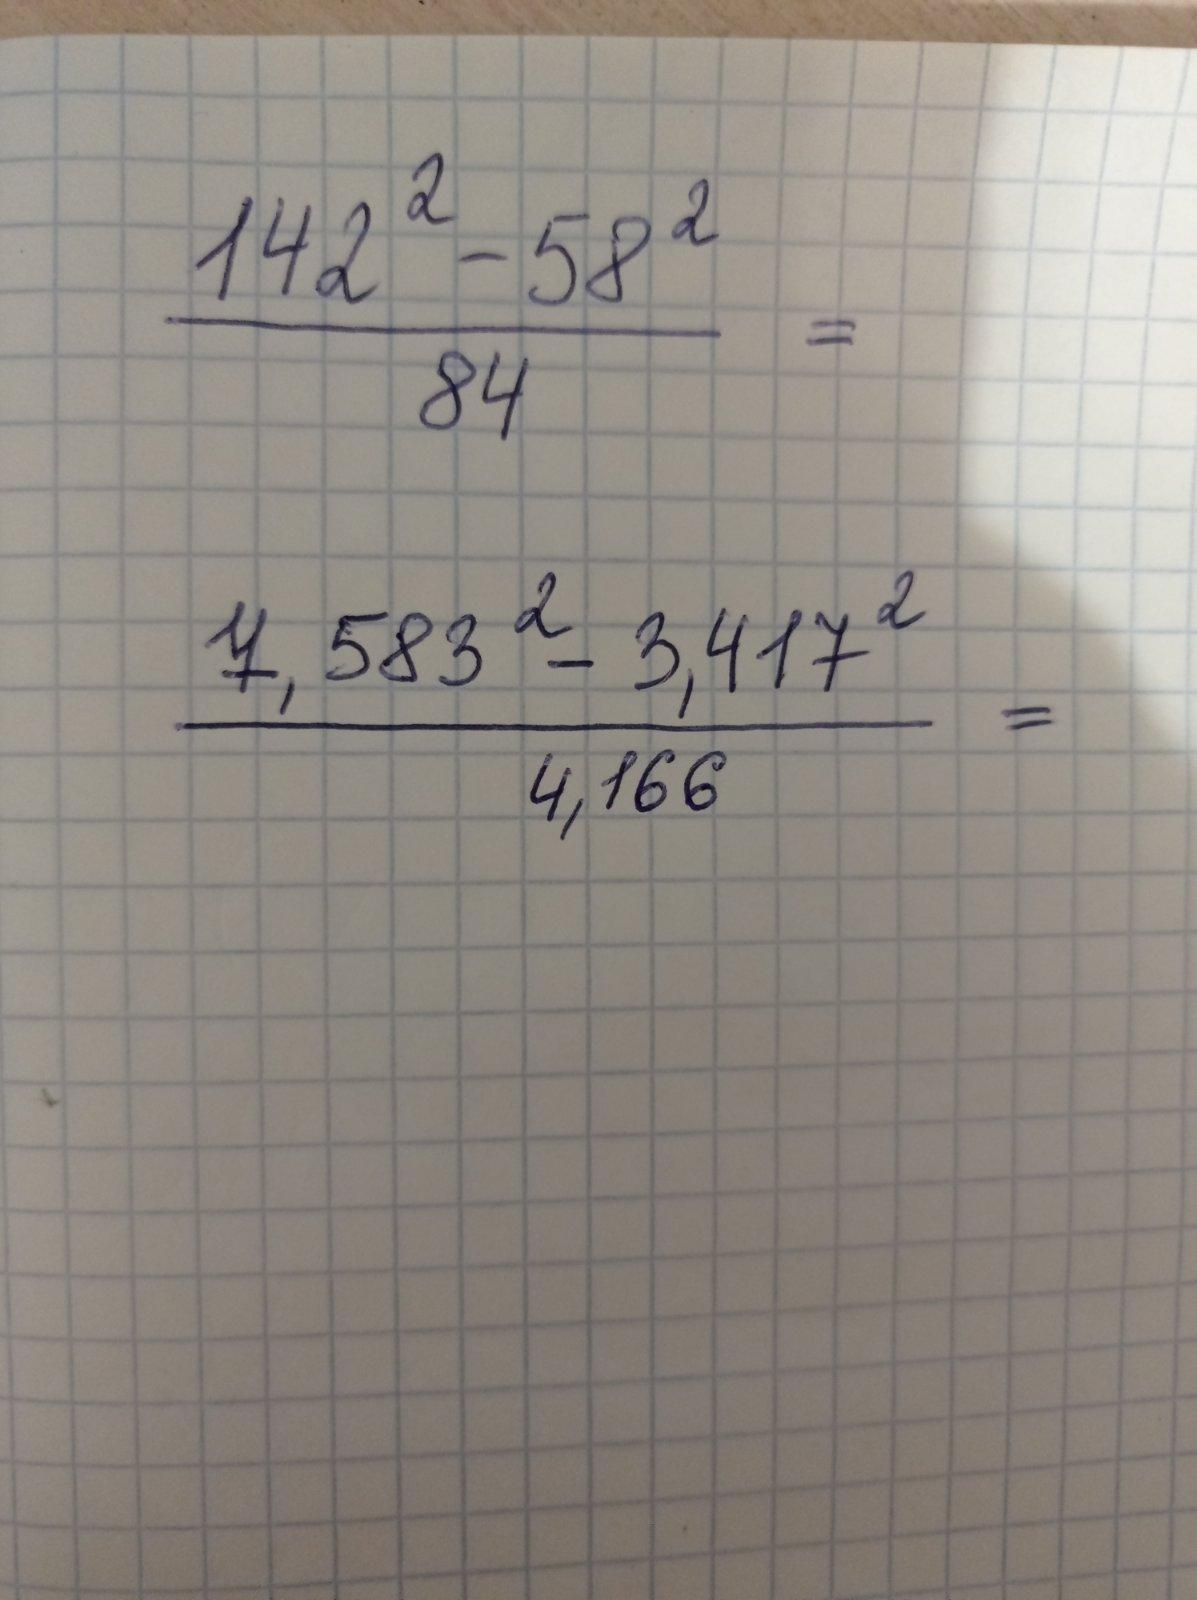 142² - 58²
84 =
7,583² - 3,417²
4,166 =